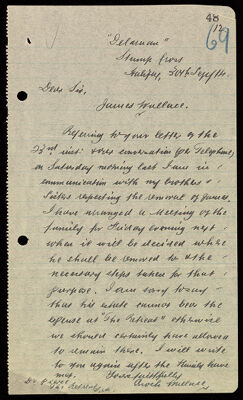 48
12
69
"Delamain"
Stump Cross
Halifax, 30th Sept/14.
Dear Sir,
James Wallace.
Referring to your letter of the
23rd inst: & our conversation per Telephone
on Saturday morning last I am in
communication with my brothers &
Sisters respecting the removal of James.
I have arranged a Meeting of the
family for Friday evening next
when it will be decided where
he shall be removed to & the
necessary steps taken for that
purpose. I am sorry to say
that his estate cannot bear the
expense at "The Retreat" otherwise
we should certainly have allowed
to remain there. I will write
to you again after the family have
met.
Yours faithfully
Wallace,
The Retreat, York